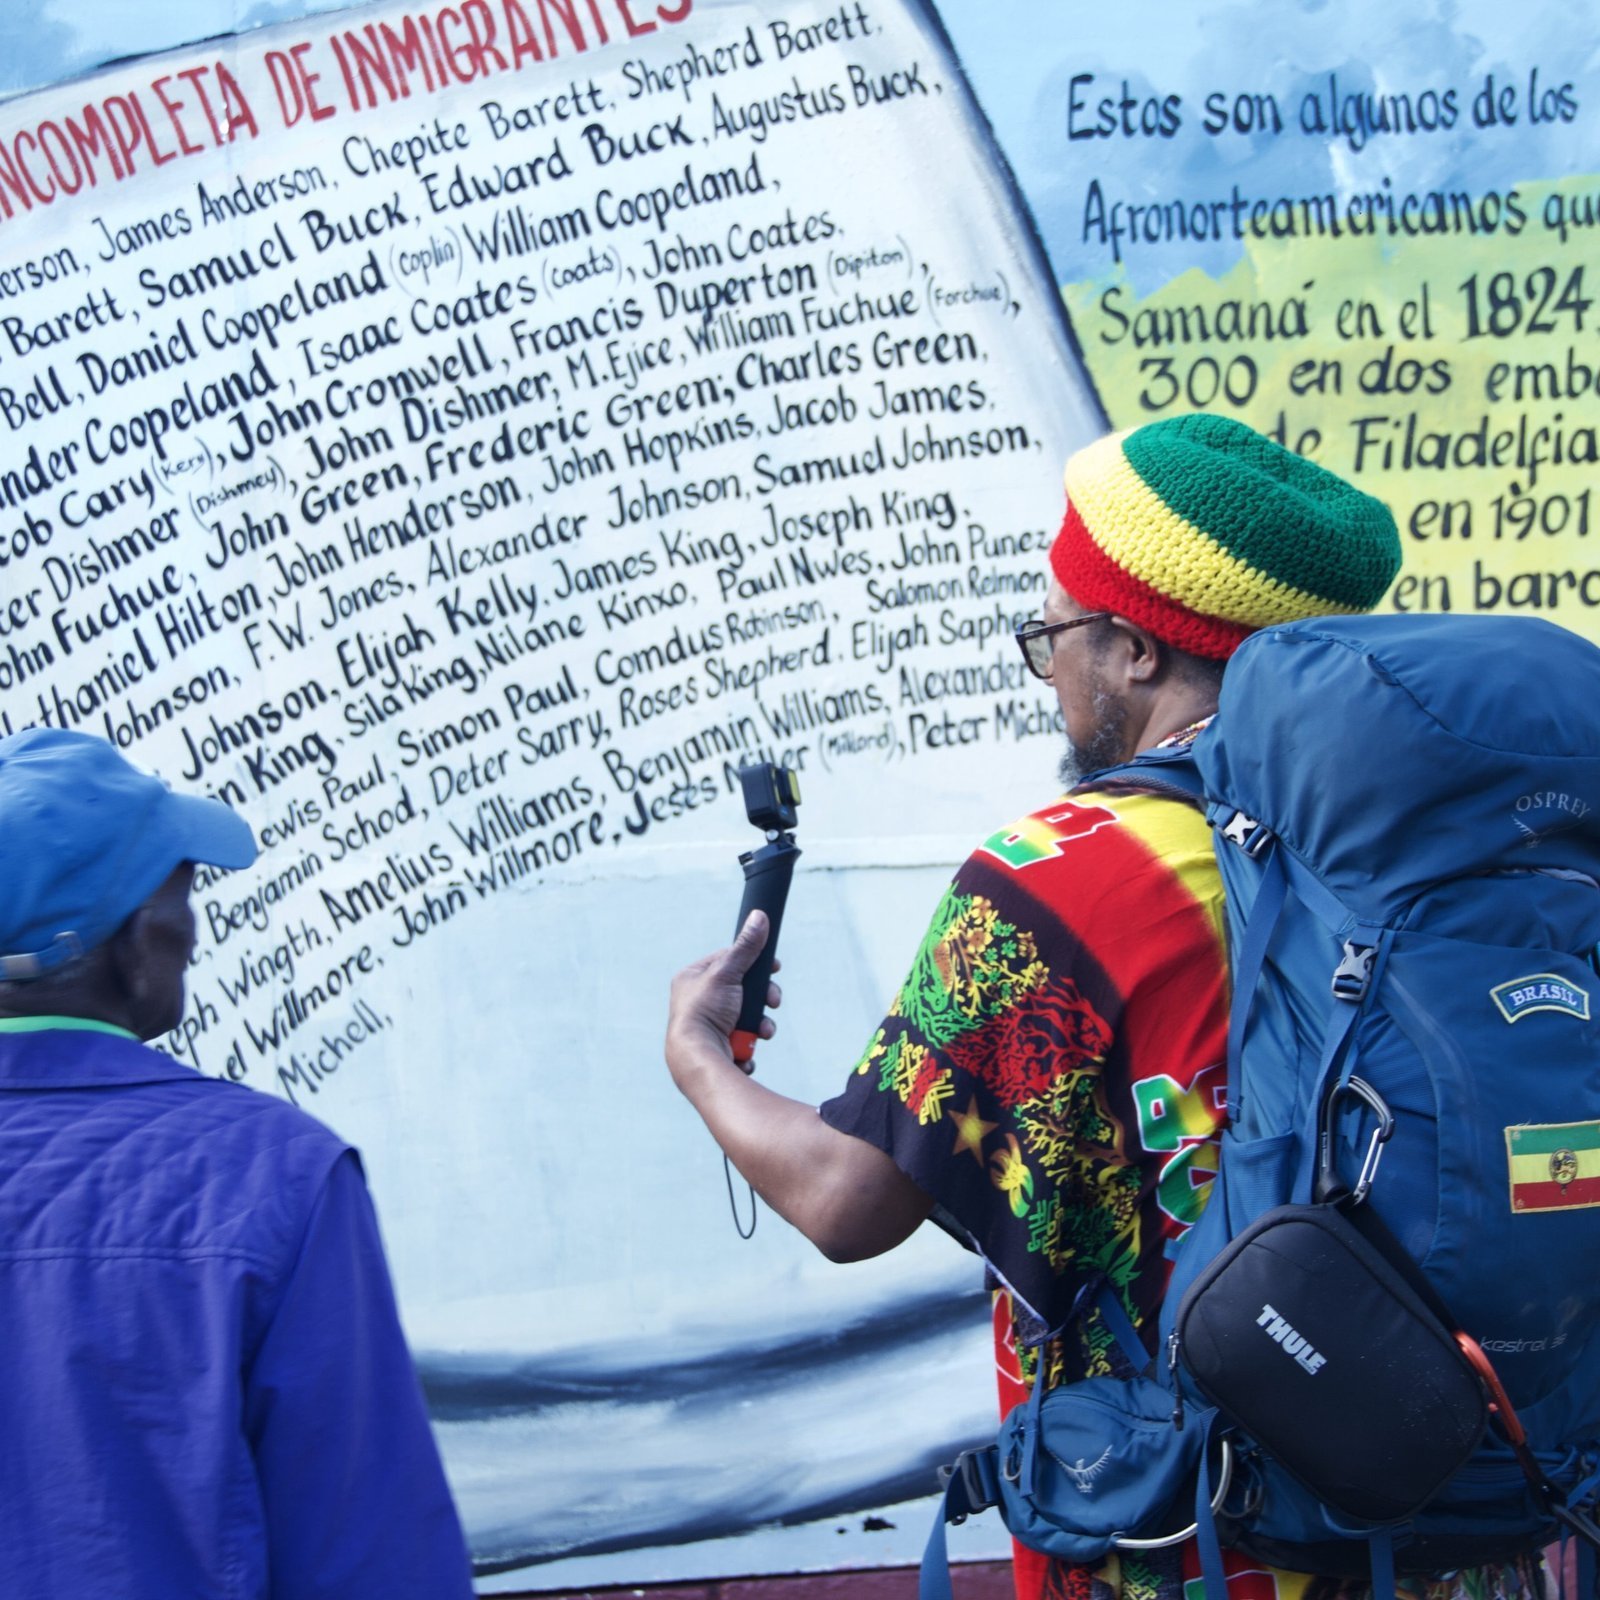 INCOMPLETA DE INMIGRANTES
James Anderson, Chepite Barett, Shepherd Barett,
Barett, Samuel Buck, Edward Buck, Augustus Buck,
Bell, Daniel Coopeland (Coplin) William Coopeland,
Coopeland, Isaac Coates (Coats), John Coates,
Cary (Kery), John Cronwell, Francis Duperton (Dipiton),
Dishmer (Dishmey), John Dishmer, M. Ejice, William Fuchue (Forchue),
John Fuchue, John Green, Frederic Green; Charles Green,
Nathaniel Hilton, John Henderson, John Hopkins, Jacob James.
Johnson, F.W. Jones, Alexander Johnson, Samuel Johnson,
Johnson, Elijah Kelly, James King, Joseph King,
King, Sila King, Nilane Kinxo, Paul Nwes, John Punez
Lewis Paul, Simon Paul, Comdus Robinson, Salomon Relmon
Benjamin Schod, Deter Sarry, Roses Shepherd, Elijah Sapher
Wingth, Amelius Williams, Benjamin Williams, Alexander
Willmore, John Willmore, Jeses Miller (Millord), Peter Miche
Michell,
Estos son algunos de los
Afronorteamericanos que
Samaná en el 1824,
300 en dos emb
de Filadelfia
en 1901
en barc
OSPREY
BRASIL
THULE
kestrel